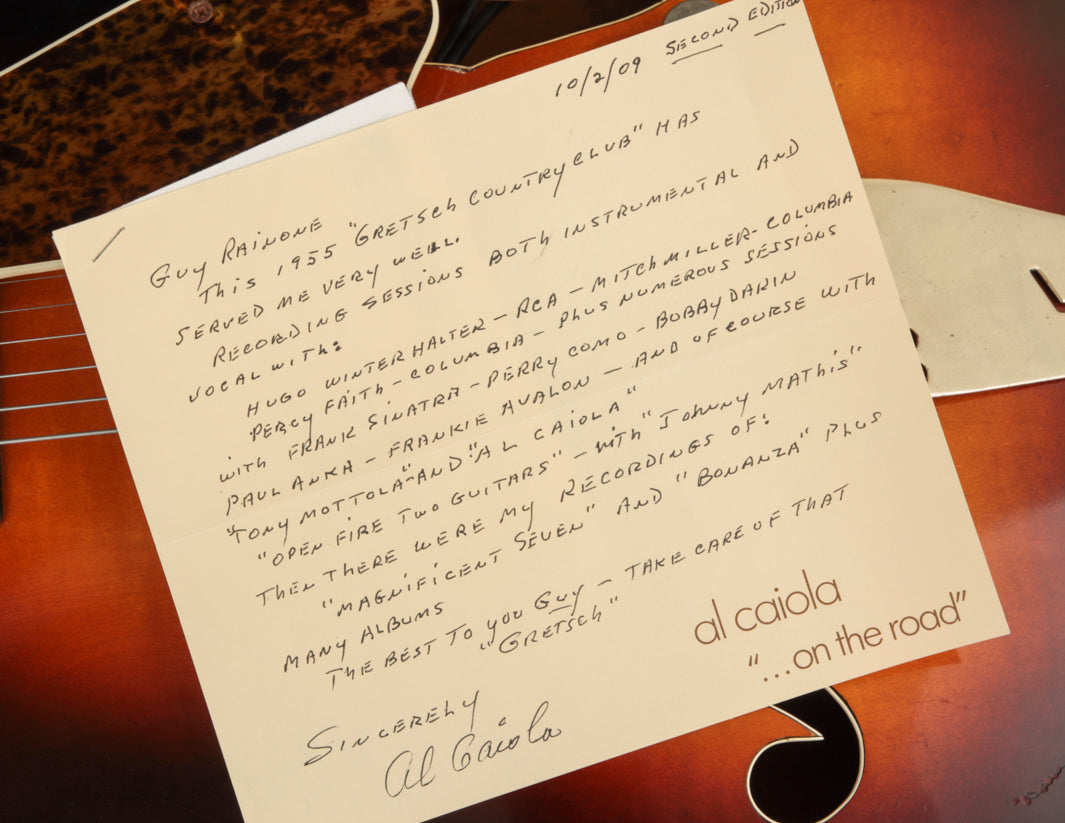 10/2/09 SECOND EDITION
GUY RAINONE
THIS 1955 "GRETSCH COUNTRY CLUB" HAS
SERVED ME VERY WELL.
RECORDING SESSIONS BOTH INSTRUMENTAL AND
VOCAL WITH:
HUGO WINTERHALTER - RCA - MITCH MILLER - COLUMBIA
PERCY FAITH - COLUMBIA - PLUS NUMEROUS SESSIONS
WITH FRANK SINATRA - PERRY COMO - BOBBY DARIN
PAUL ANKA - FRANKIE AVALON - AND OF COURSE WITH
"TONY MOTTOLA" AND "AL CAIOLA"
"OPEN FIRE TWO GUITARS" - WITH "JOHNNY MATHIS"
THEN THERE WERE MY RECORDINGS OF:
"MAGNIFICENT SEVEN" AND "BONANZA" PLUS
MANY ALBUMS
THE BEST TO YOU GUY - TAKE CARE OF THAT
"GRETSCH"
SINCERELY
Al Caiola
al caiola
"...on the road"